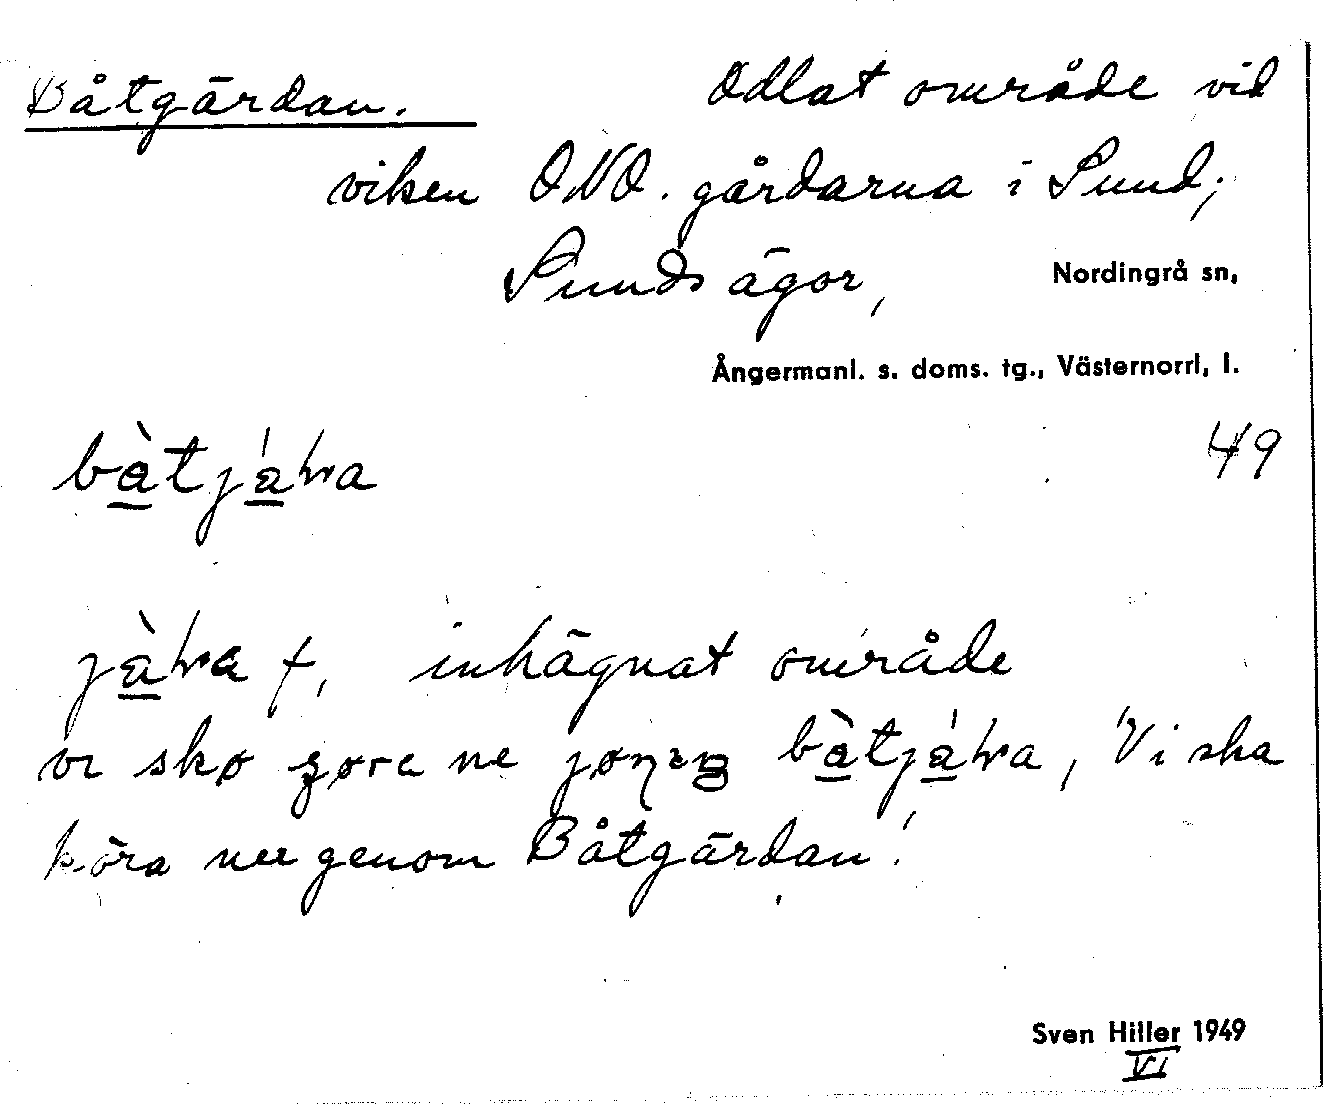 Båtgärdan. Odlat område vid
viken ONO. gårdarna i Sund;
Sunds ägor, Nordingrå sn,
Ångermanl. s. doms. tg., Västernorrl. l.
49
inhägnat område
bàtjáħa, Vi ska
köra ner genom Båtgärdan!
Sven Hiller 1949
VI